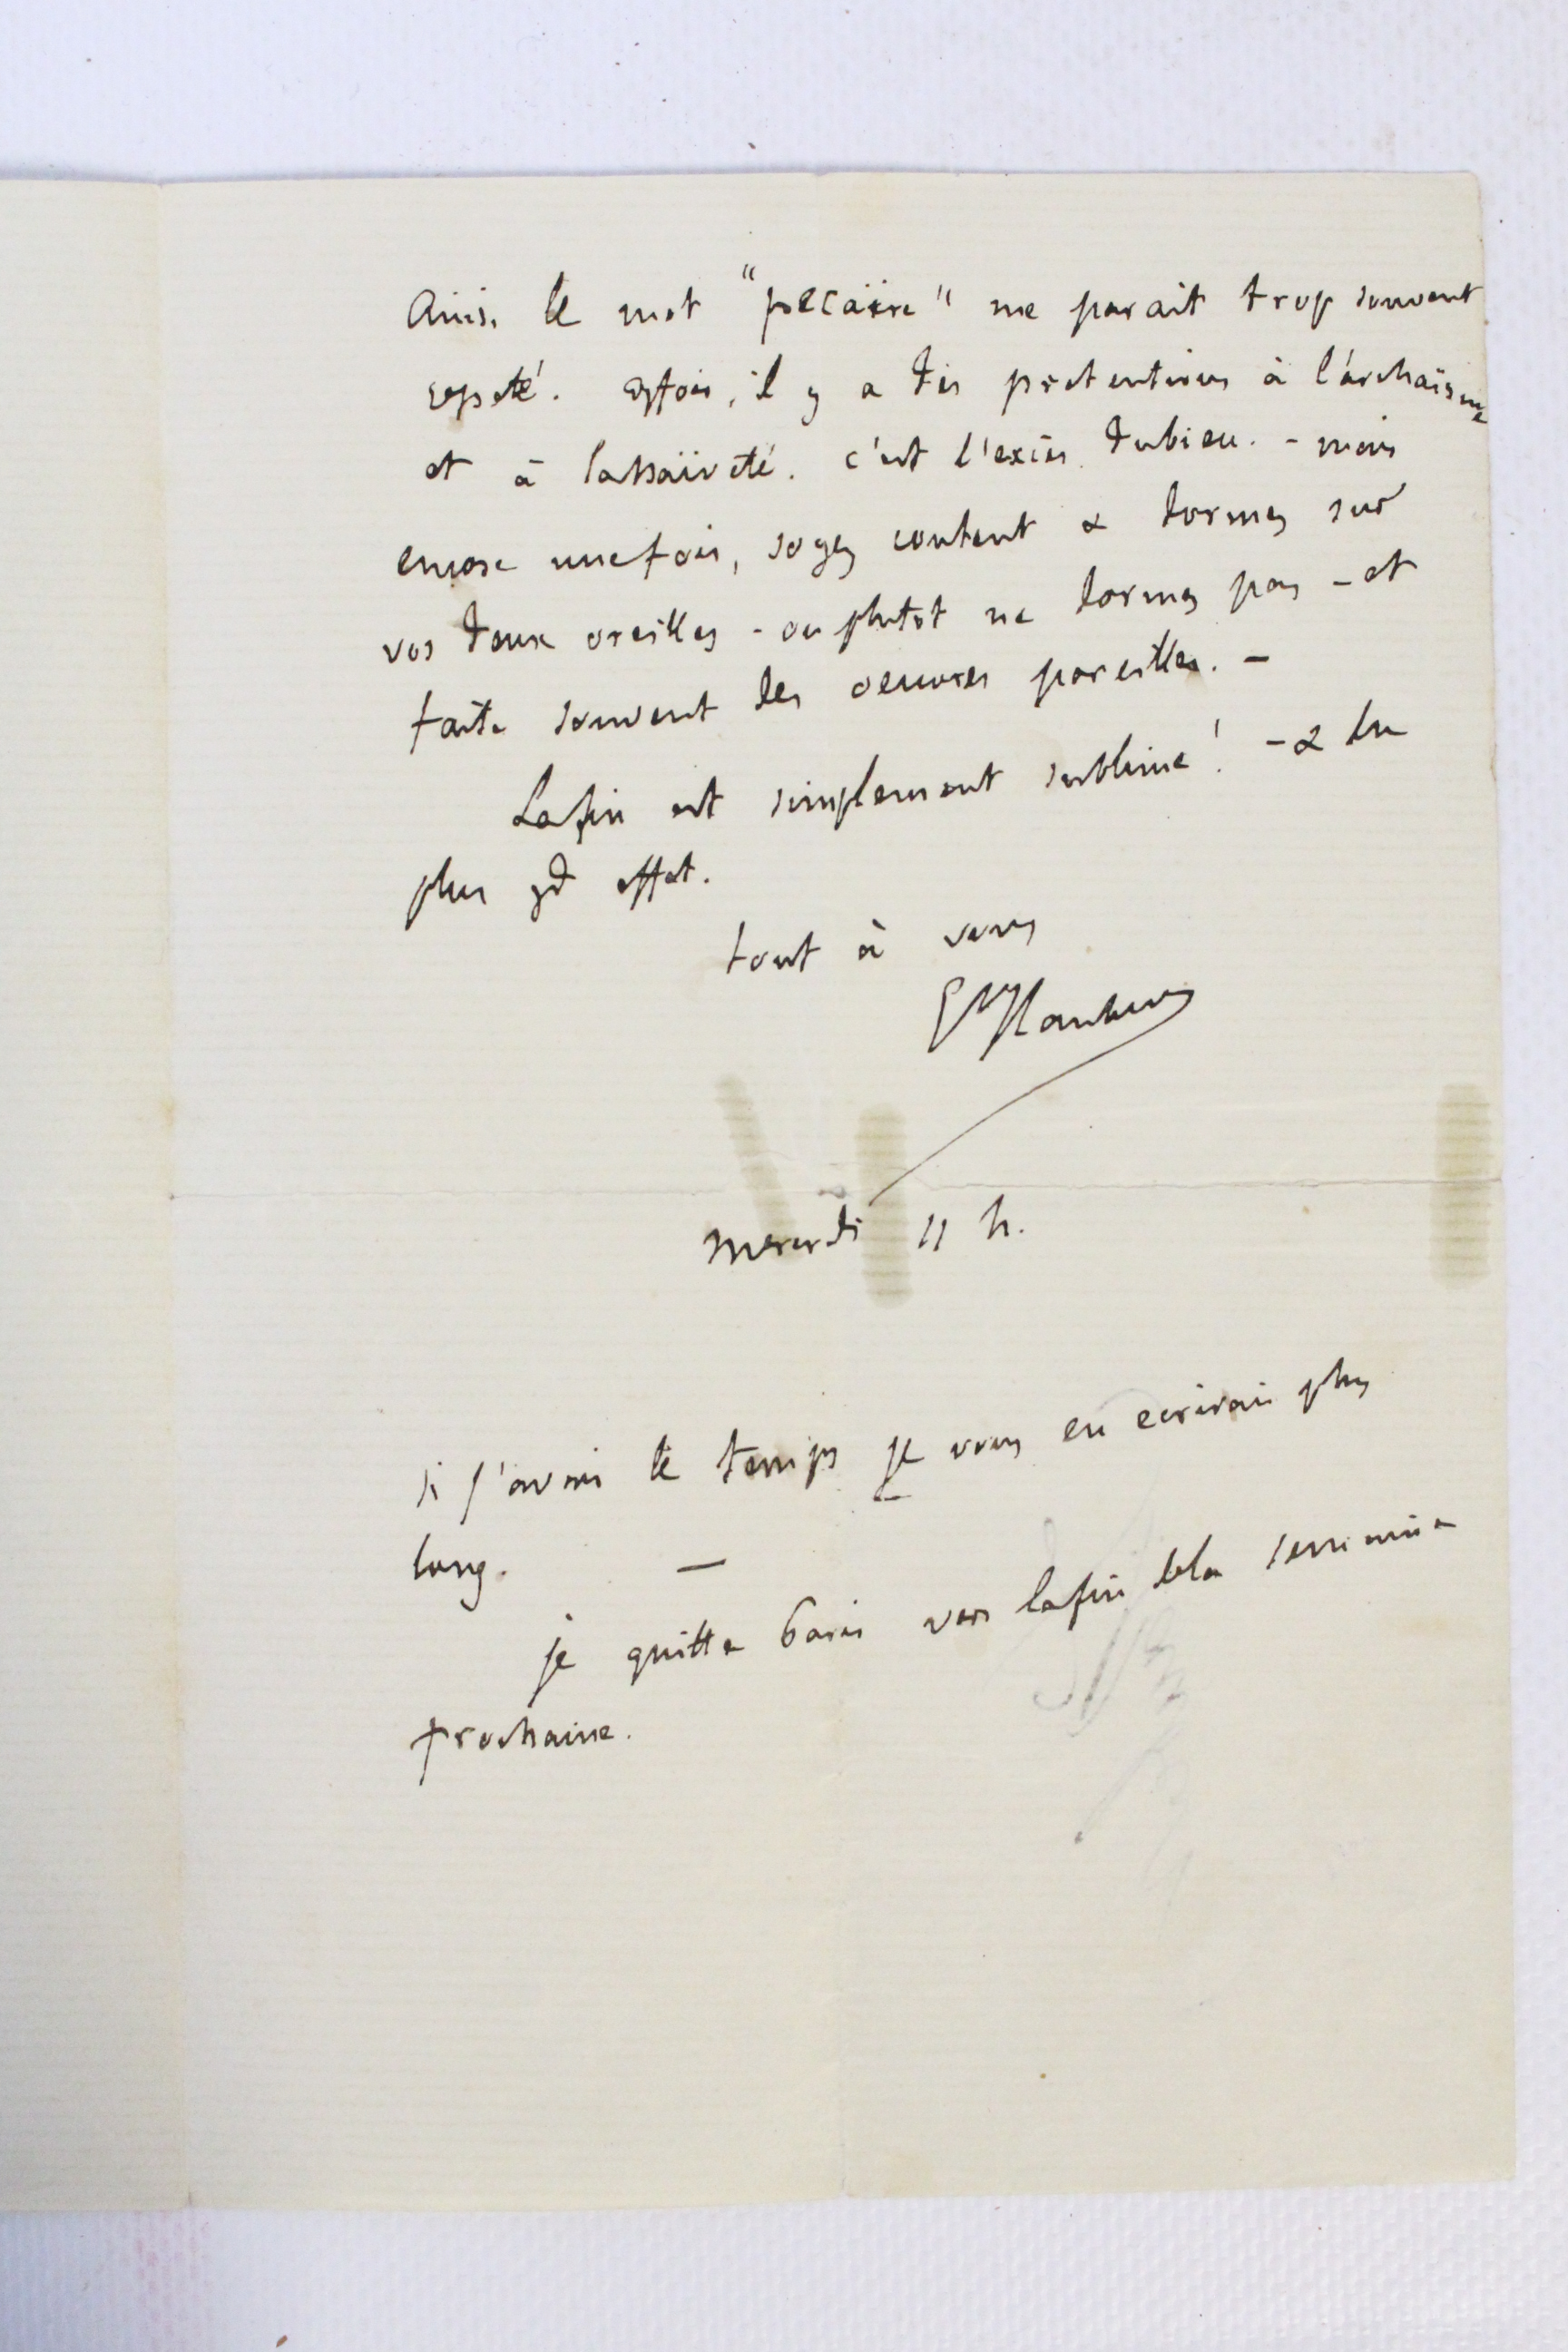 Ainsi le mot "pecaïre" me parait trop souvent
repeté. Qqfois, il y a des pretentions à l'archaïsme
et à la naïveté. c'est l'excès du bien. - mais
encore une fois, soyez content & dormez sur
vos deux oreilles - ou plutot ne dormez pas - et
faite souvent des oeuvres pareilles. -
La fin est simplement sublime! - & du
plus gd effet.
tout à vous
Gve Flaubert
mercredi 11 h.
si j'avais le temps je vous en ecrirais plus
long. -
je quitte Paris vers la fin de la semaine
prochaine.